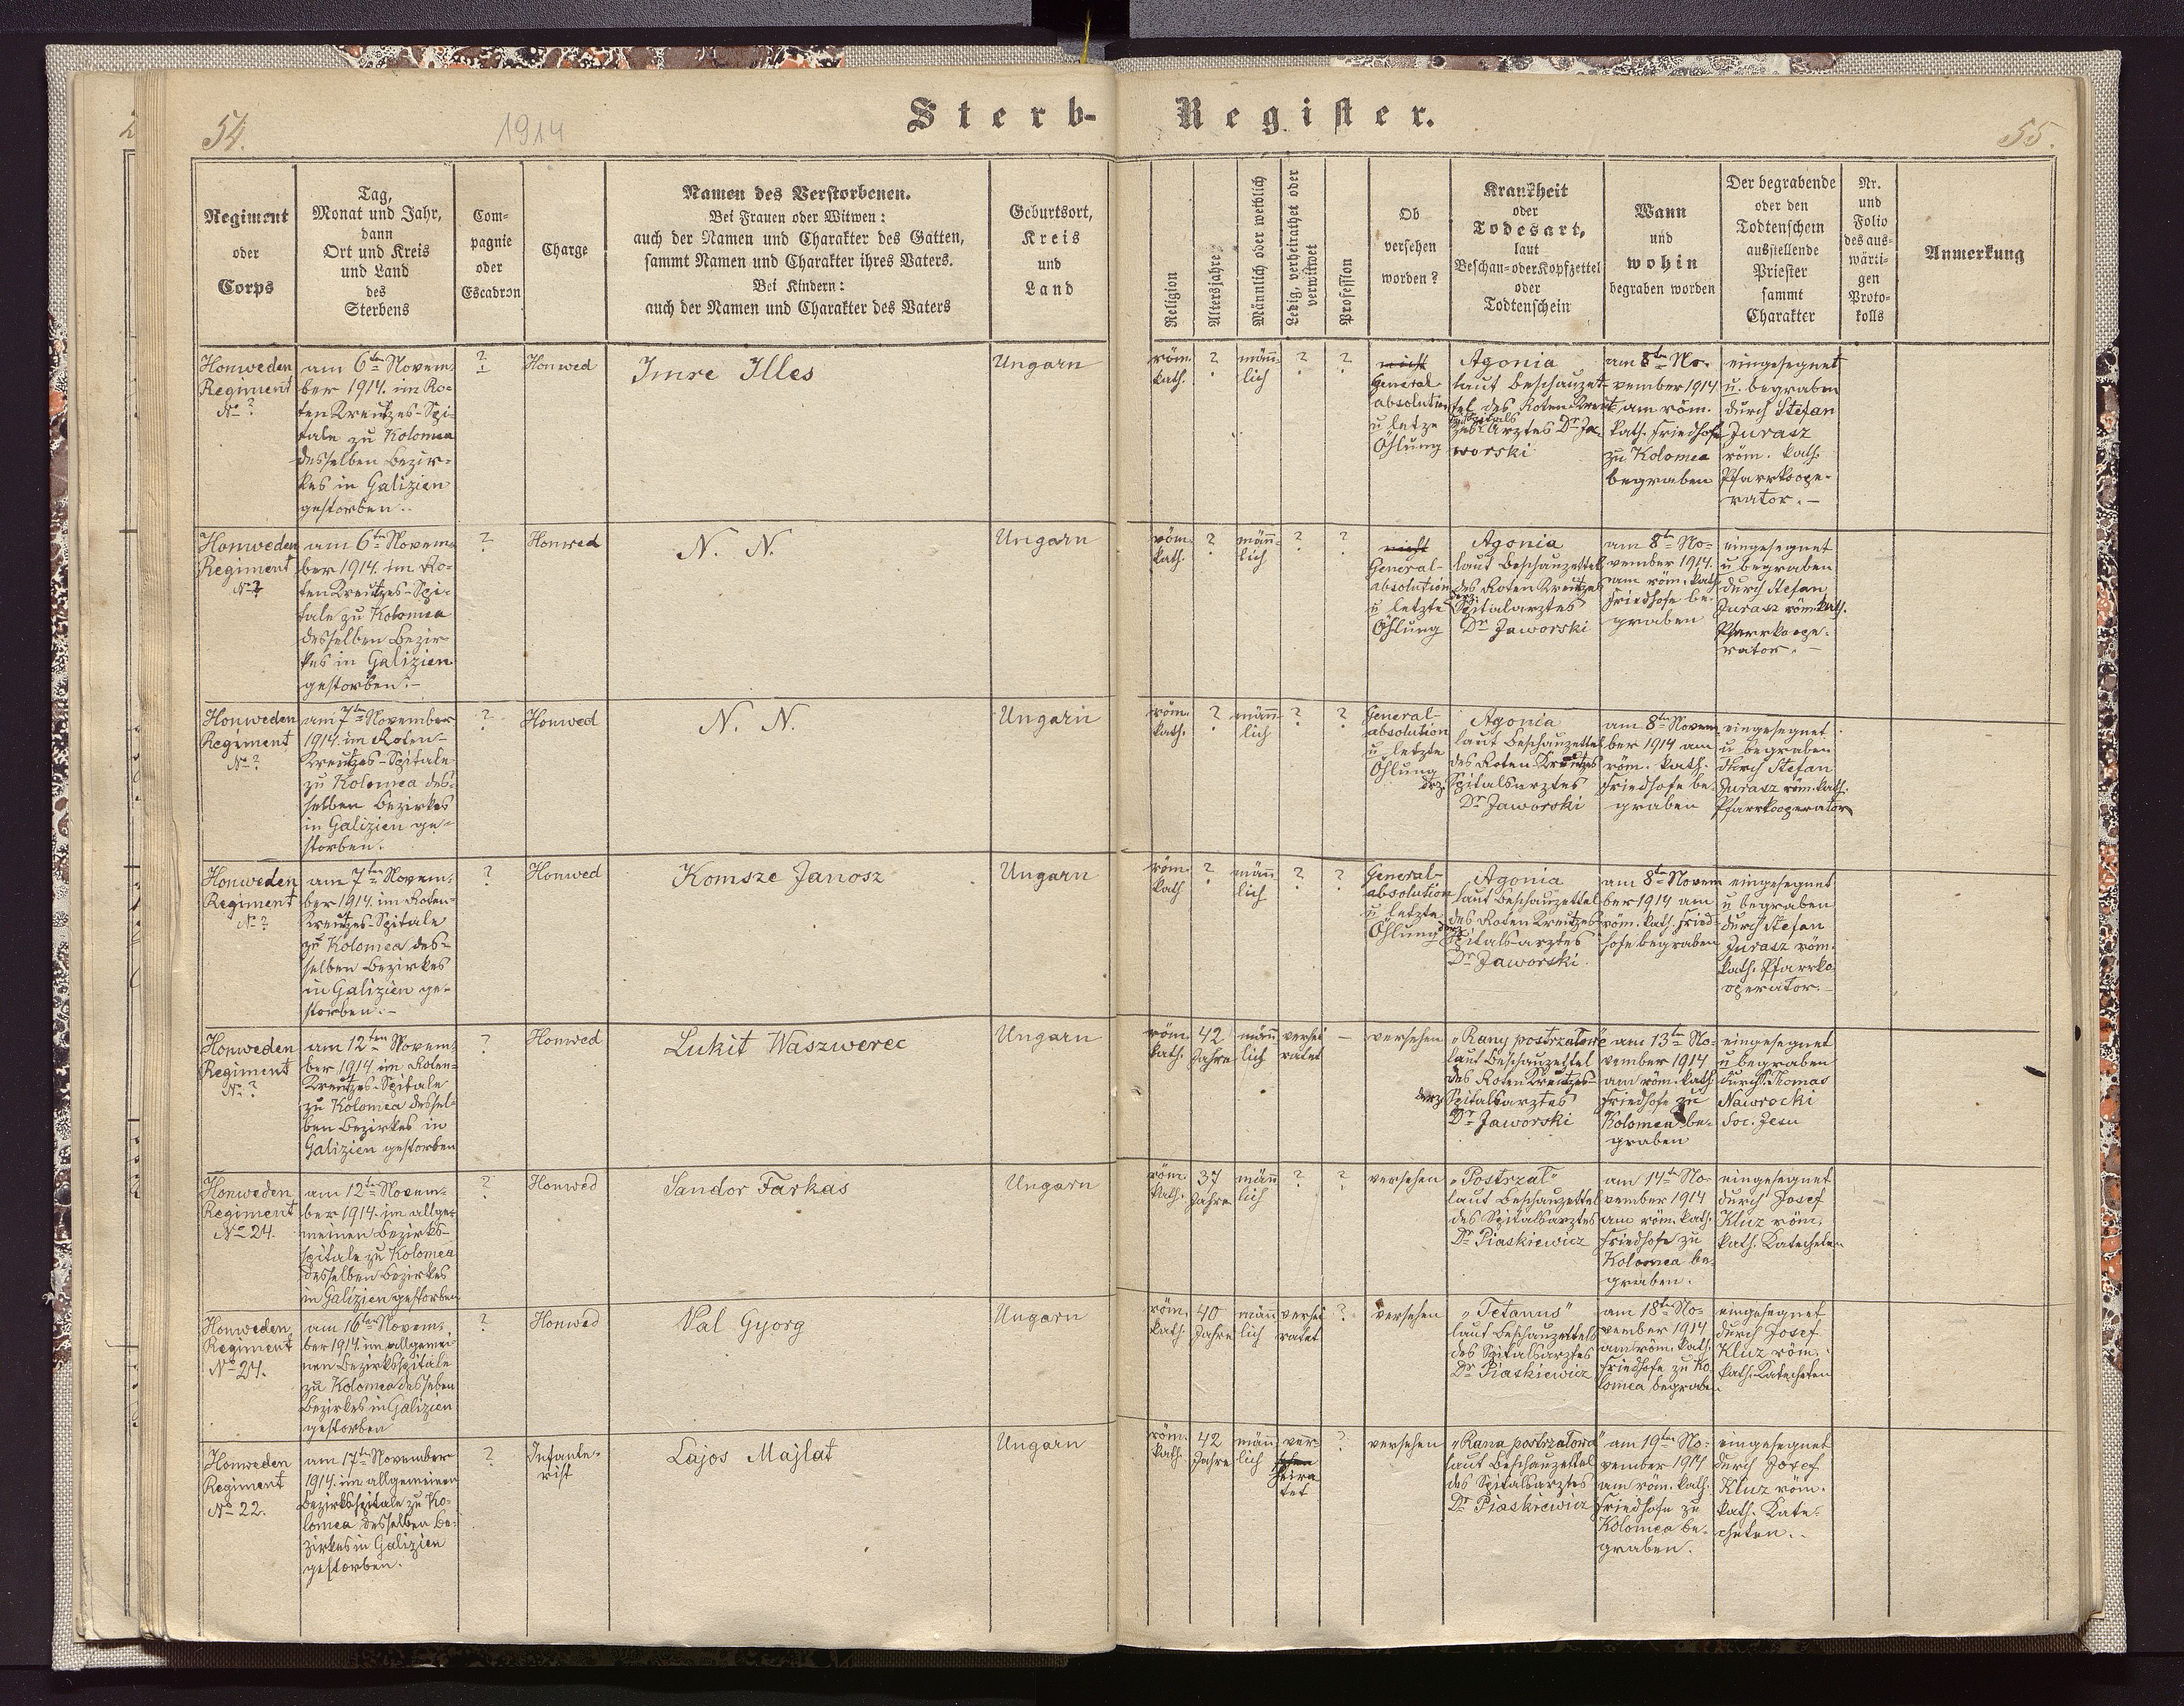 54.
1914
Sterb-
Register.
55.
Regiment
oder
Corps
Tag,
Monat und Jahr,
dann
Ort und Kreis
und Land
des
Sterbens
Com-
pagnie
oder
Escadron
Charge
Namen des Verstorbenen.
Bei Frauen oder Witwen:
auch der Namen und Charakter des Gatten,
sammt Namen und Charakter ihres Vaters.
Bei Kindern:
auch der Namen und Charakter des Vaters
Geburtsort,
Kreis
und
Land
Religion
Altersjahre
Männlich oder weiblich
Ledig, verheirathet oder
verwitwet
Profession
Ob
versehen
worden?
Krankheit
oder
Todesart,
laut
Beschau- oder Kopfzettel
oder
Todtenschein
Wann
und
wohin
begraben worden
Der begrabende
oder den
Todtenschein
ausstellende
Priester
sammt
Charakter
Nr.
und
Folio
des aus-
wärti-
gen
Proto-
kolls
Anmerkung
Honweden
Regiment
No ?
am 6ten Novem-
ber 1914. im Ro-
ten Kreutzes-Spi-
tale zu Kolomea
desselben Bezir-
kes in Galizien
gestorben..
?
Honwed
Imre Illes
Ungarn
röm.
kath.
?
männ-
lich
?
?
nicht
General
absolution
u letze
Öhlung
Agonia
laut Beschauzet-
tel des Roten Kreut-
zes Spitals
Arztes Dr Ja-
worski
am 8ten No-
vember 1914
am röm.
kath. Friedhofe
zu Kolomea
begraben
eingesegnet
u. begraben
durch Stefan
Jurasz
röm. kath.
Pfarrkoope-
rator. –
Honweden
Regiment
No ?
am 6ten Novem-
ber 1914. im Ro-
ten Kreutzes-Spi-
tale zu Kolomea
desselben Bezir-
kes in Galizien
gestorben. –
?
Honwed
N. N.
Ungarn
röm.
kath.
?
männ-
lich
?
?
nicht
General-
absolution
u letzte
Öhlung
Agonia
laut Beschauzettel
des Roten Kreutzes
derz.
Spitalarztes
Dr Jaworski
am 8ten No-
vember 1914.
am röm. kath
Friedhofe be-
graben
eingesegnet
u begraben
durch Stefan
Jurasz röm. kath.
Pfarrkoope-
rator. –
Honweden
Regiment
No ?
am 7ten November
1914. im Roten-
Kreutzes-Spitale
zu Kolomea des-
selben Bezirkes
in Galizien ge-
storben.
?
Honwed
N. N.
Ungarn
röm.
kath.
?
männ-
lich
?
?
General-
absolution
u letzte
Öhlung
Agonia
laut Beschauzettel
des Roten Kreutzes
derz. Spitalsarztes
Dr Jaworski
am 8ten Novem-
ber 1914 am
röm. kath.
Friedhofe be-
graben
eingesegnet
u begraben
durch Stefan
Jurasz röm. kath.
Pfarrkooperator
Honweden
Regiment
No ?
am 7ten Novem-
ber 1914. im Roten-
Kreutzes-Spitale
zu Kolomea des-
selben Bezirkes
in Galizien ge-
storben. –
?
Honwed
Komsze Janosz
Ungarn
röm.
kath
?
männ
lich
?
?
General-
absolution
u letzte
Öhlung
Agonia
laut Beschauzettel
des Roten Kreutzes
derz. Spitalsarztes
Dr Jaworski
am 8ten Novem
ber 1914 am
röm. kath. Fried-
hofe begraben
eingesegnet
u begraben
durch Stefan
Jurasz röm.
kath. Pfarrko-
operator. –
Honweden
Regiment
No ?
am 12ten Novem-
ber 1914 im Roten-
Kreutzes-Spitale
zu Kolomea dessel-
ben Bezirkes in
Galizien gestorben
?
Honwed
Lukit Waszwerec
Ungarn
röm.
kath.
42
Jahre
männ
lich
verhei
ratet
–
versehen
"Rany postrzałowe
laut Beschauzettel
des Roten Kreutzes-
derz. Spitalsarztes
Dr Jaworski
am 13ten No-
vember 1914
am röm. kath
Friedhofe zu
Kolomea be-
graben
eingesegnet
u begraben
durch Thomas
Nawrocki
Soc. Jesu
Honweden
Regiment
No 24.
am 12ten Novem-
ber 1914. im allge-
meinen Bezirks-
spitale zu Kolomea
desselben Bezirkes
in Galizien gestorben
?
Honwed
Sandor Farkas
Ungarn
röm.
kath.
37
Jahre
männ
lich
?
?
versehen
"Postrzal"
laut Beschauzettel
des Spitalsarztes
Dr Piaskiewicz
am 14ten No-
vember 1914
am röm. kath.
Friedhofe zu
Kolomea be-
graben.
eingesegnet
durch Josef
Kluz röm.
kath. Katecheten
Honweden
Regiment
No 24.
am 16ten Novem-
ber 1914. im allgemei-
nen Bezirksspitale
zu Kolomea desselben
Bezirkes in Galizien
gestorben
?
Honwed
Val Gyorg
Ungarn
röm.
kath.
40
Jahre
männ
lich
verhei
ratet
?
versehen
"Tetanus"
laut Beschauzettels
des Spitalsarztes
Dr Piaskiewicz
am 18ten No-
vember 1914
am röm. kath.
Friedhofe zu Ko-
lomea begraben
eingesegnet
durch Josef
Kluz röm.
kath. Katecheten
Honweden
Regiment
No 22.
am 17ten November
1914. im allgemeinen
Bezirksspitale zu Ko-
lomea desselben Be-
zirkes in Galizien
gestorben.
?
Infante-
rist
Lajos Majlat
Ungarn
röm.
kath.
42
Jahre
männ
lich
ver-
heira
tet
?
versehen
"Rana postrzałowa"
laut Beschauzettel
des Spitalsarztes
Dr Piaskiewicz
am 19ten No-
vember 1914
am röm. kath.
Friedhofe zu
Kolomea be-
graben.
eingesegnet
durch Josef
Kluz röm.
kath. Kate-
cheten. –